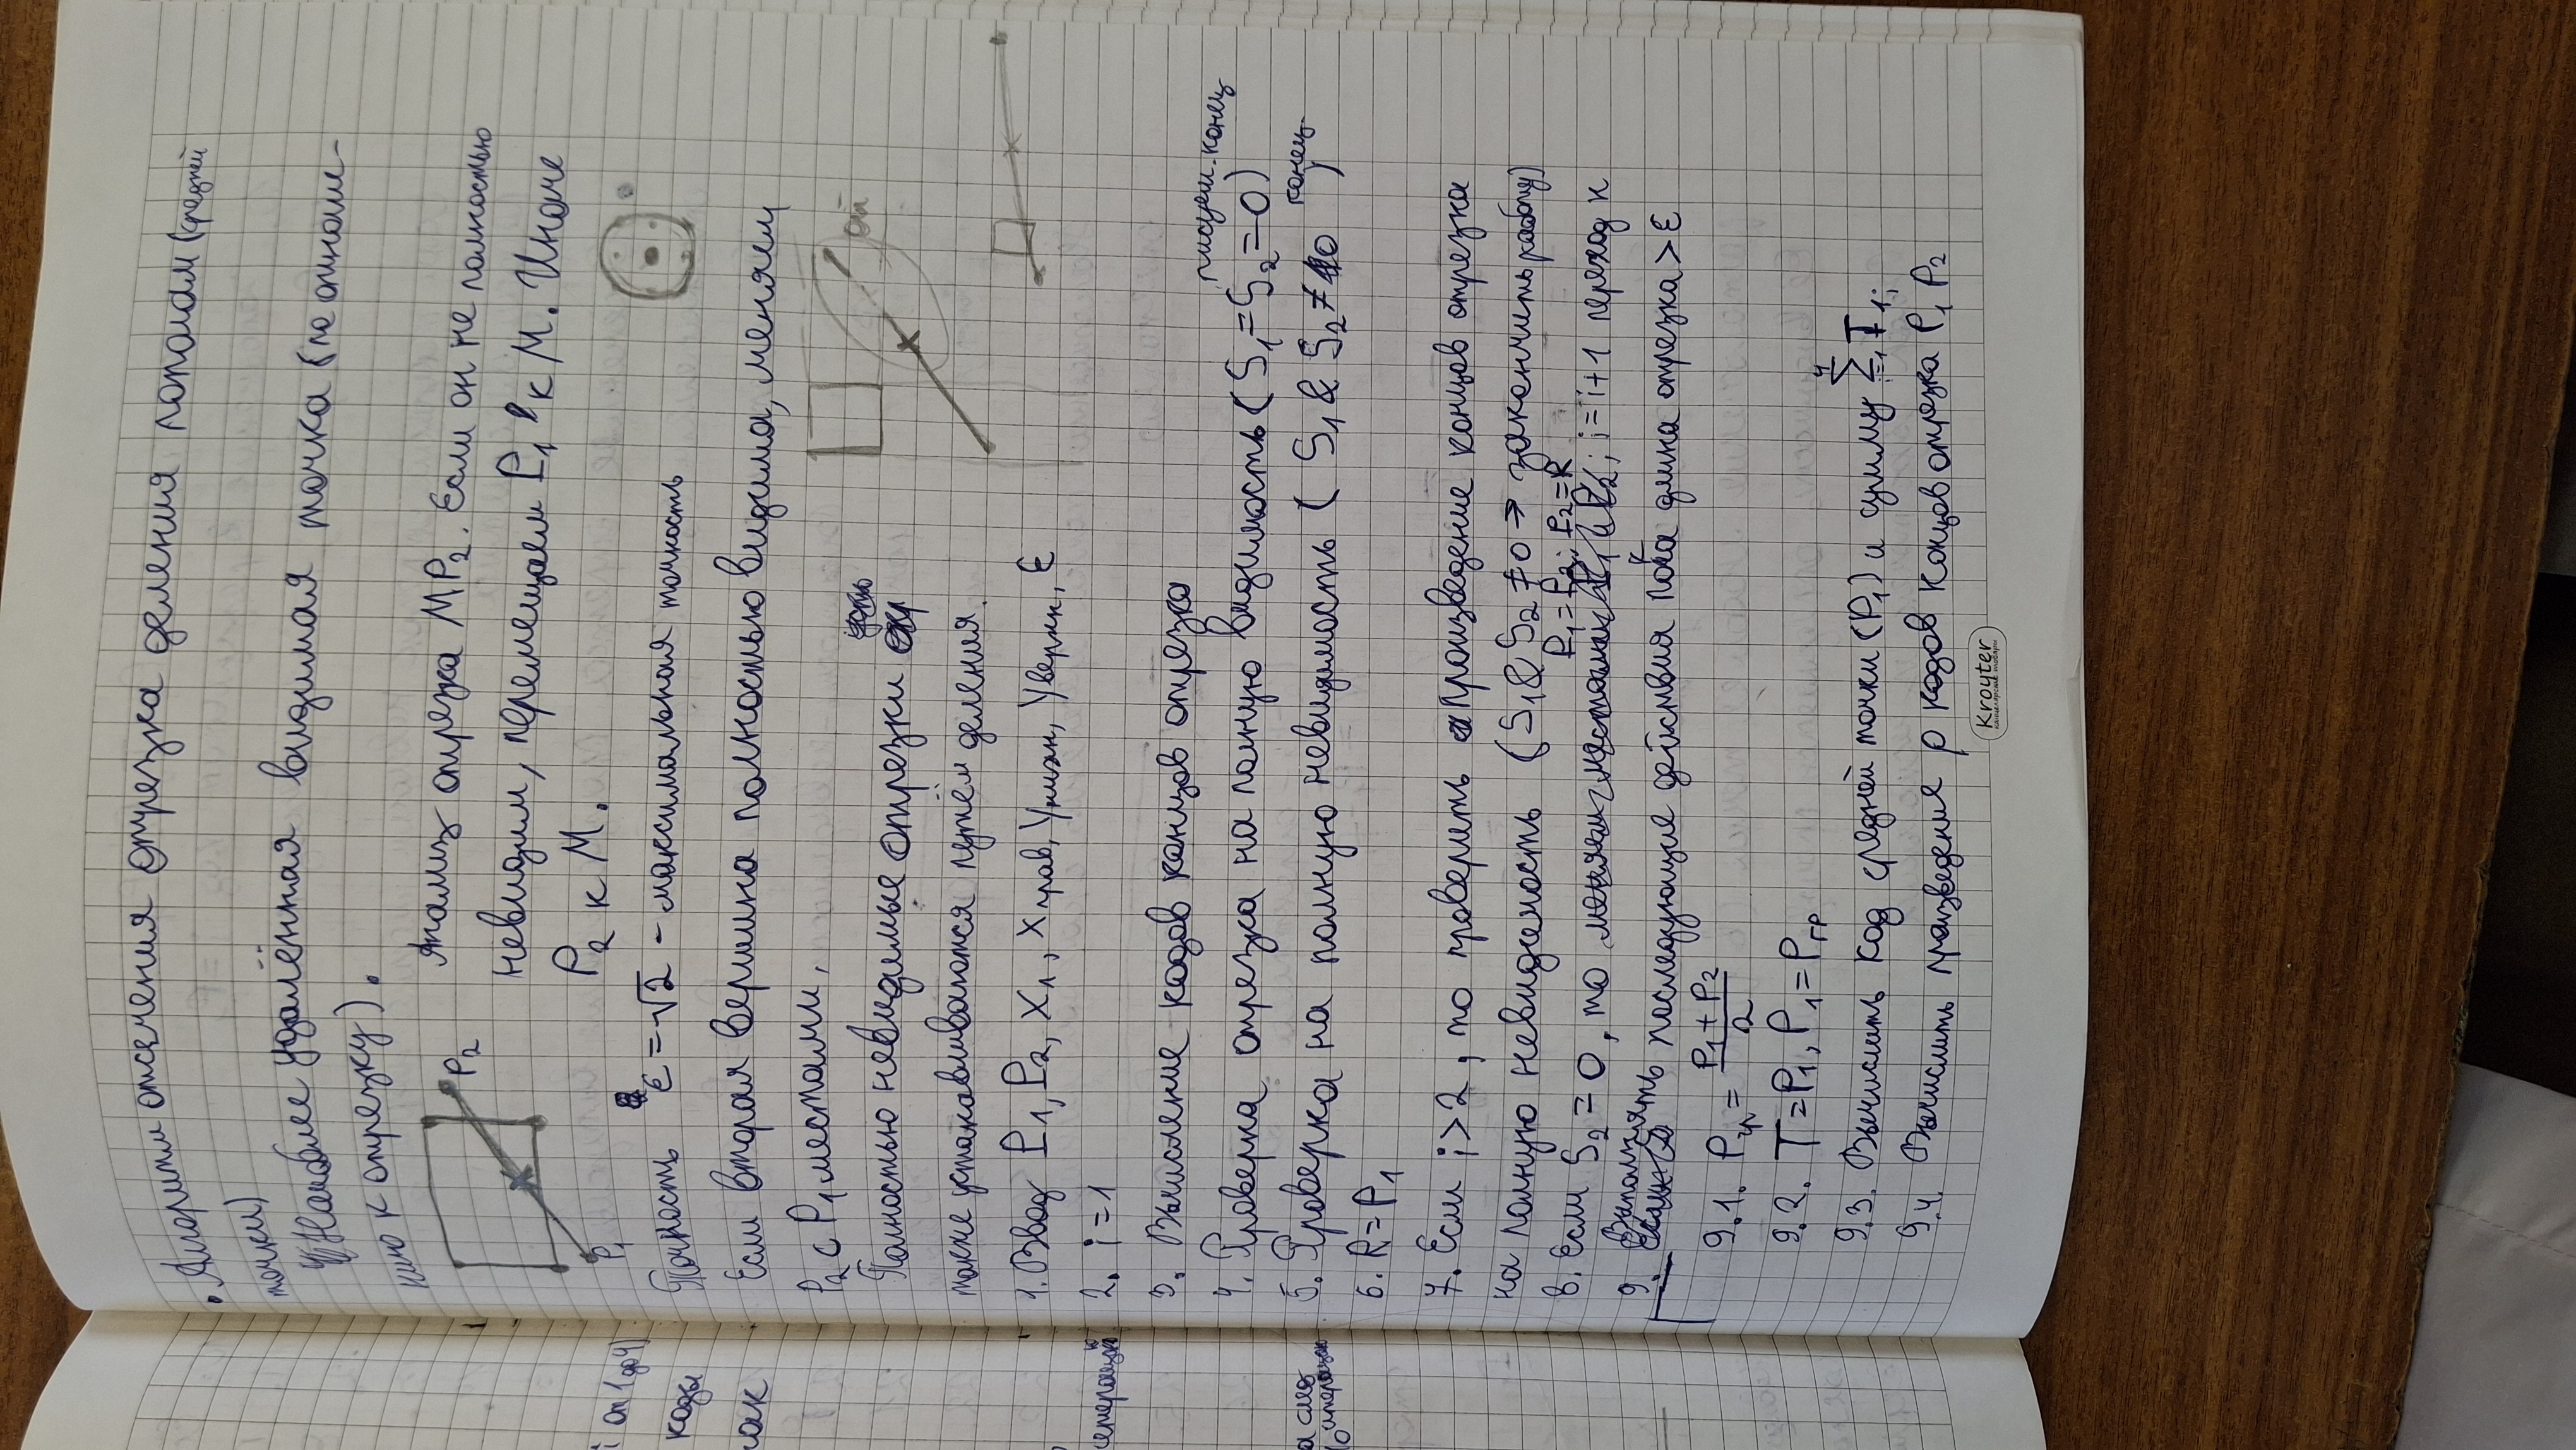 • Алгоритм отсечения отрезка деления пополам (средней
точки)
Наиболее удалённая видимая точка (по отноше-
нию к отрезку).
P₂
P₁
Анализ отрезка MP₂. Если он не полностью
невидим, перемещаем P₁ к M. Иначе
P₂ к M.
Точность ε = √2 - максимальная точность
Если вторая вершина полностью видима, меняем
P₂ с P₁ местами.
Полностью невидимые отрезки
также устанавливаются путём деления.
1. Ввод P₁, P₂, Xл, Xправ, Yнижн, Yверхн, ε
2. i = 1
3. Вычисление кодов концов отрезка
4. Проверка отрезка на полную видимость (S₁ = S₂ = 0) рисуем. конец
5. Проверка на полную невидимость (S₁ & S₂ ≠ 0 конец.)
6. R = P₁
7. Если i > 2, то проверить произведение концов отрезка
на полную невидимость (S₁ & S₂ ≠ 0 → закончить работу)
8. Если S₂ = 0, то P₁ = P₂; P₂ = R; i = i + 1 переход к
9. Выполнять последующие действия пока длина отрезка > ε
9.1. Pср = (P₁ + P₂)/2
9.2. T = P₁, P₁ = Pср
9.3. Вычислить код средней точки (P₁) и сумму
9.4. Вычислить произведение p кодов концов отрезка P₁ P₂
Kroyter
канцелярские товары
i от 1 до 4)
коды
так
а след